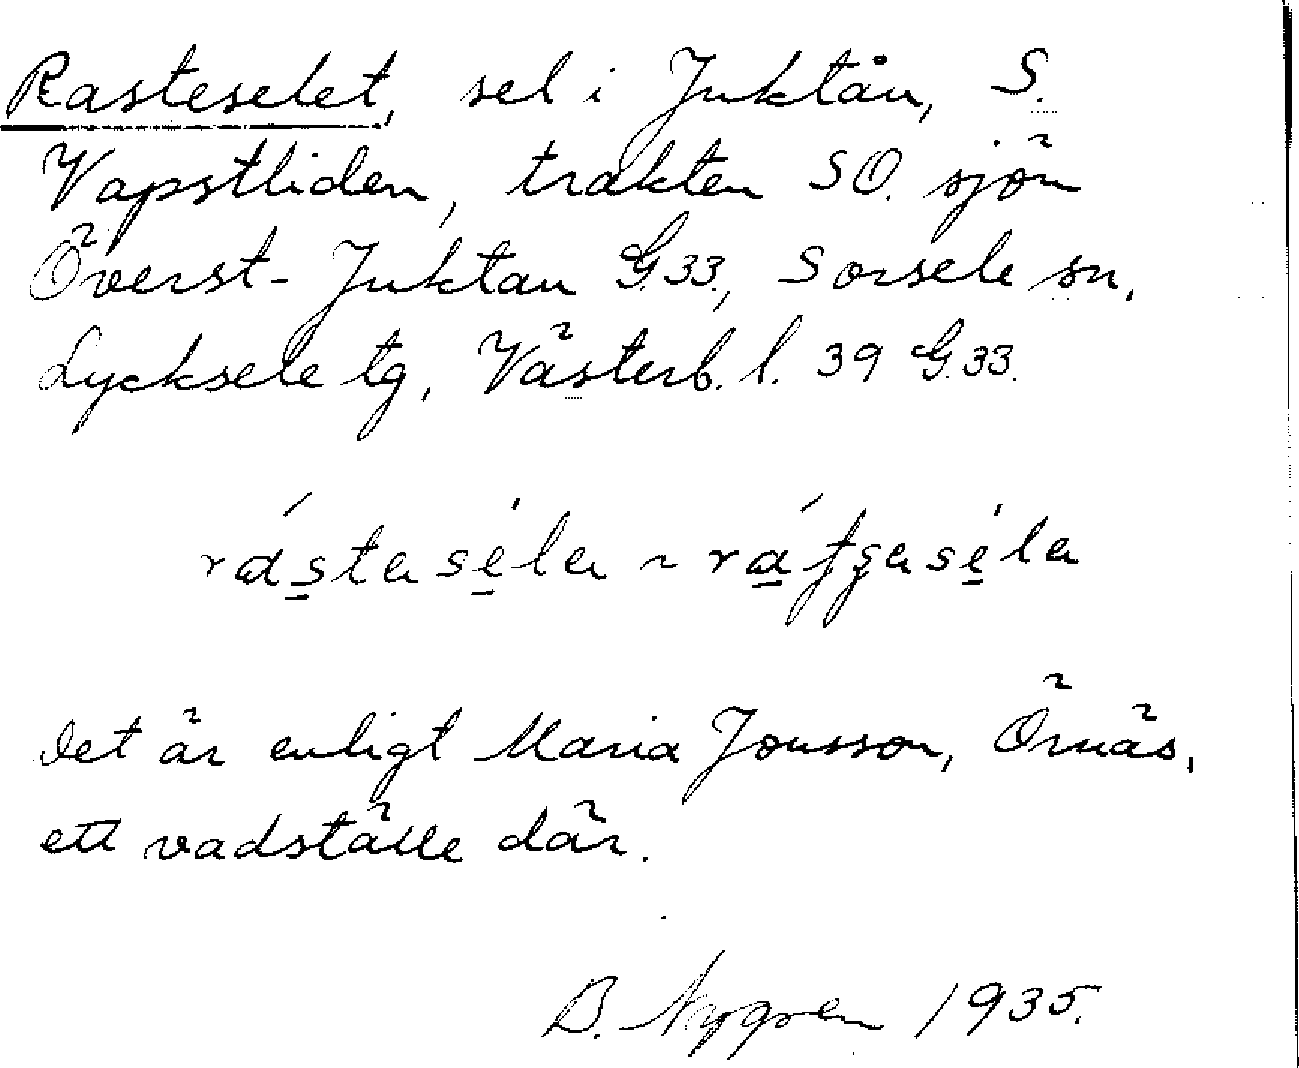 Rasteselet, sel i Juktån, S.
Vapstliden, trakten SO. sjön
Överst-Juktan G.33., Sorsele sn,
Lycksele tg, Västerb. l. 39 G.33.
rástaséla ~ 
Det är enligt Maria Jonsson, Örnäs,
ett vadställe där.
B. Nygren 1935.